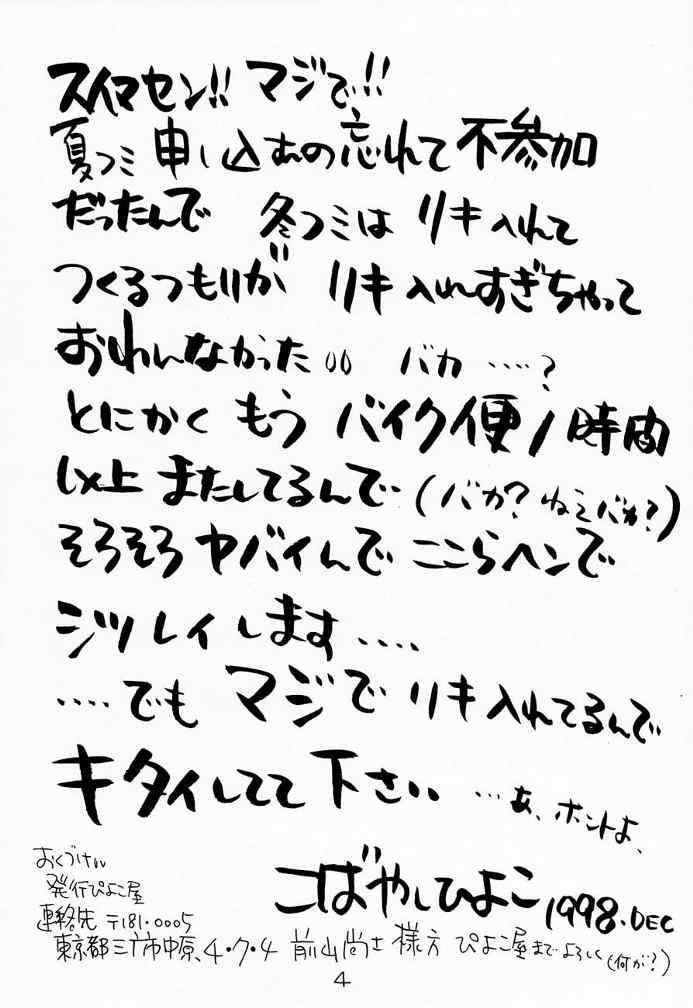 スイマセン!! マジで!!
夏コミ 申し込むの忘れて 不参加
だったんで 冬コミは リキ入れて
つくるつもりが リキ入れすぎちゃって
おわんなかった バカ ‥‥?
とにかく もう バイク便 1時間
以上 またしてるんで (バカ? ねえバカ?)
そろそろ ヤバイんで ここらヘンで
シツレイします ‥‥
‥‥でも マジで リキ入れてるんで
キタイしてて 下さい …あ、ホントよ、
こばやしひよこ 1998.DEC
おくづけ
発行ぴよこ屋
連絡先 〒181-0005
東京都三市中原、4・7・4 前山尚士 様方 ぴよこ屋までよろしく(何が?)
4